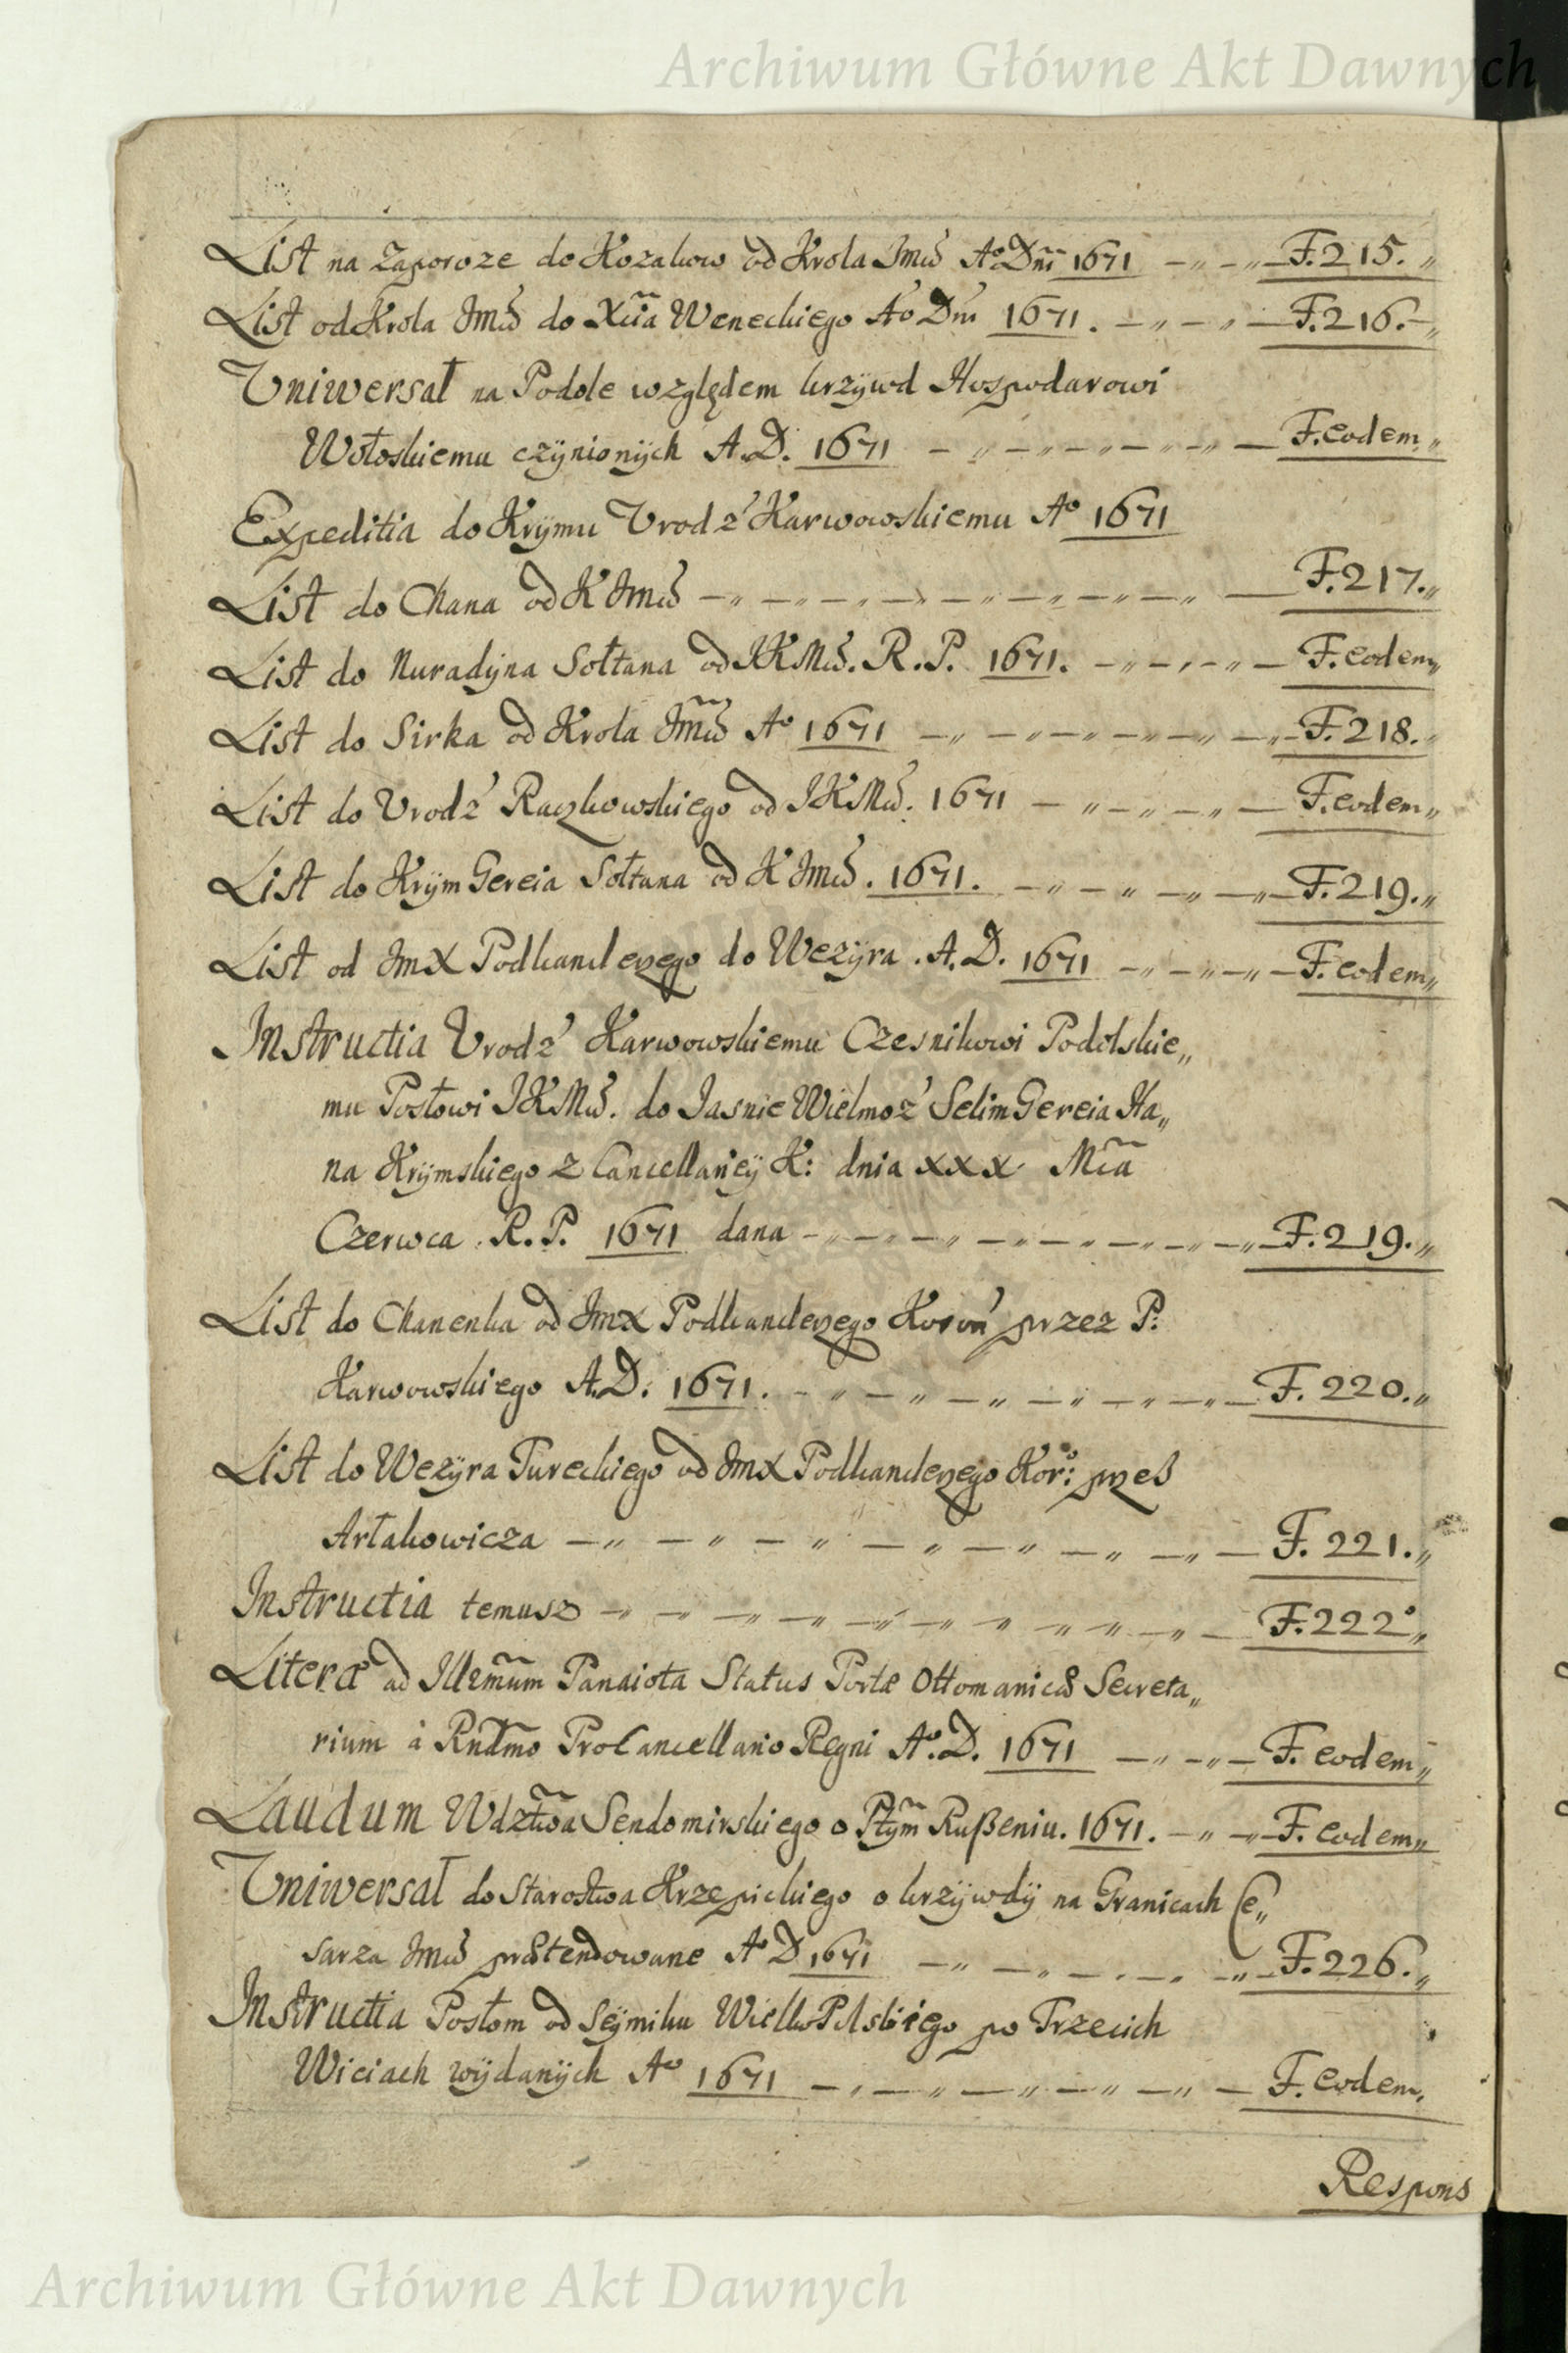 Archiwum Główne Akt Dawnych
List na Zaporoze do Kozakow od Krola Jmći Aº Dni 1671 F. 215.
List od Krola Jmći do Xcia Weneckiego Aº Dni 1671. F. 216.
Uniwersał na Podole względem krzywd Hospodarowi
Wołoskiemu czÿnionÿch A.D. 1671 F. eodem
Expeditia do Krÿmu Vrodz' Karwowskiemu Aº 1671
List do Chana od K Jmći F. 217.
List do Nuradÿna Sołtana od JKMći. R.P. 1671. F. eodem
List do Sirka od Krola Jmći Aº 1671 F. 218.
List do Vrodz' Raczkowskiego od JKMći. 1671 F. eodem
List do Krÿm Gereia Sołtana od K Jmći. 1671. F. 219.
List od JmX Podkanclerzego do Wezÿra. A.D. 1671 F. eodem
Instructia Vrodz' Karwowskiemu Czesnikowi Podolskie„
mu Posłowi JKMći. do Jasnie Wielmoz' Selim Gereia Ha„
na Krÿmskiego z Cancellarieÿ K: dnia xxx Mca
Czerwca R.P. 1671 dana F. 219.
List do Chanenka od Jmx Podkanclerzego Koron' przez P.
Karwowskiego A.D. 1671. F. 220.
List do Wezÿra Tureckiego od JmX Podkanclerzego Kor: przes
Artakowicza F. 221.
Instructia temusz F. 222
Literæ ad Illrmum Panaiota Status Portæ Ottomanicæ Secreta„
rium à Rndmo ProCancellario Regni Aº. D. 1671 F. eodem
Laudum Wdztwa Sendomirskiego o Ptym Rußeniu. 1671. F. eodem
Uniwersał do Starostwa Krzepickiego o krzÿwdÿ na Granicach Ce„
sarza Jmći prætendowane Aº D 1671 F. 226.
Instructia Posłom od Seÿmiku WielkoPolskiego po Trzecich
Wiciach wÿdanÿch Aº 1671 F. eodem.
Respons
Archiwum Główne Akt Dawnych